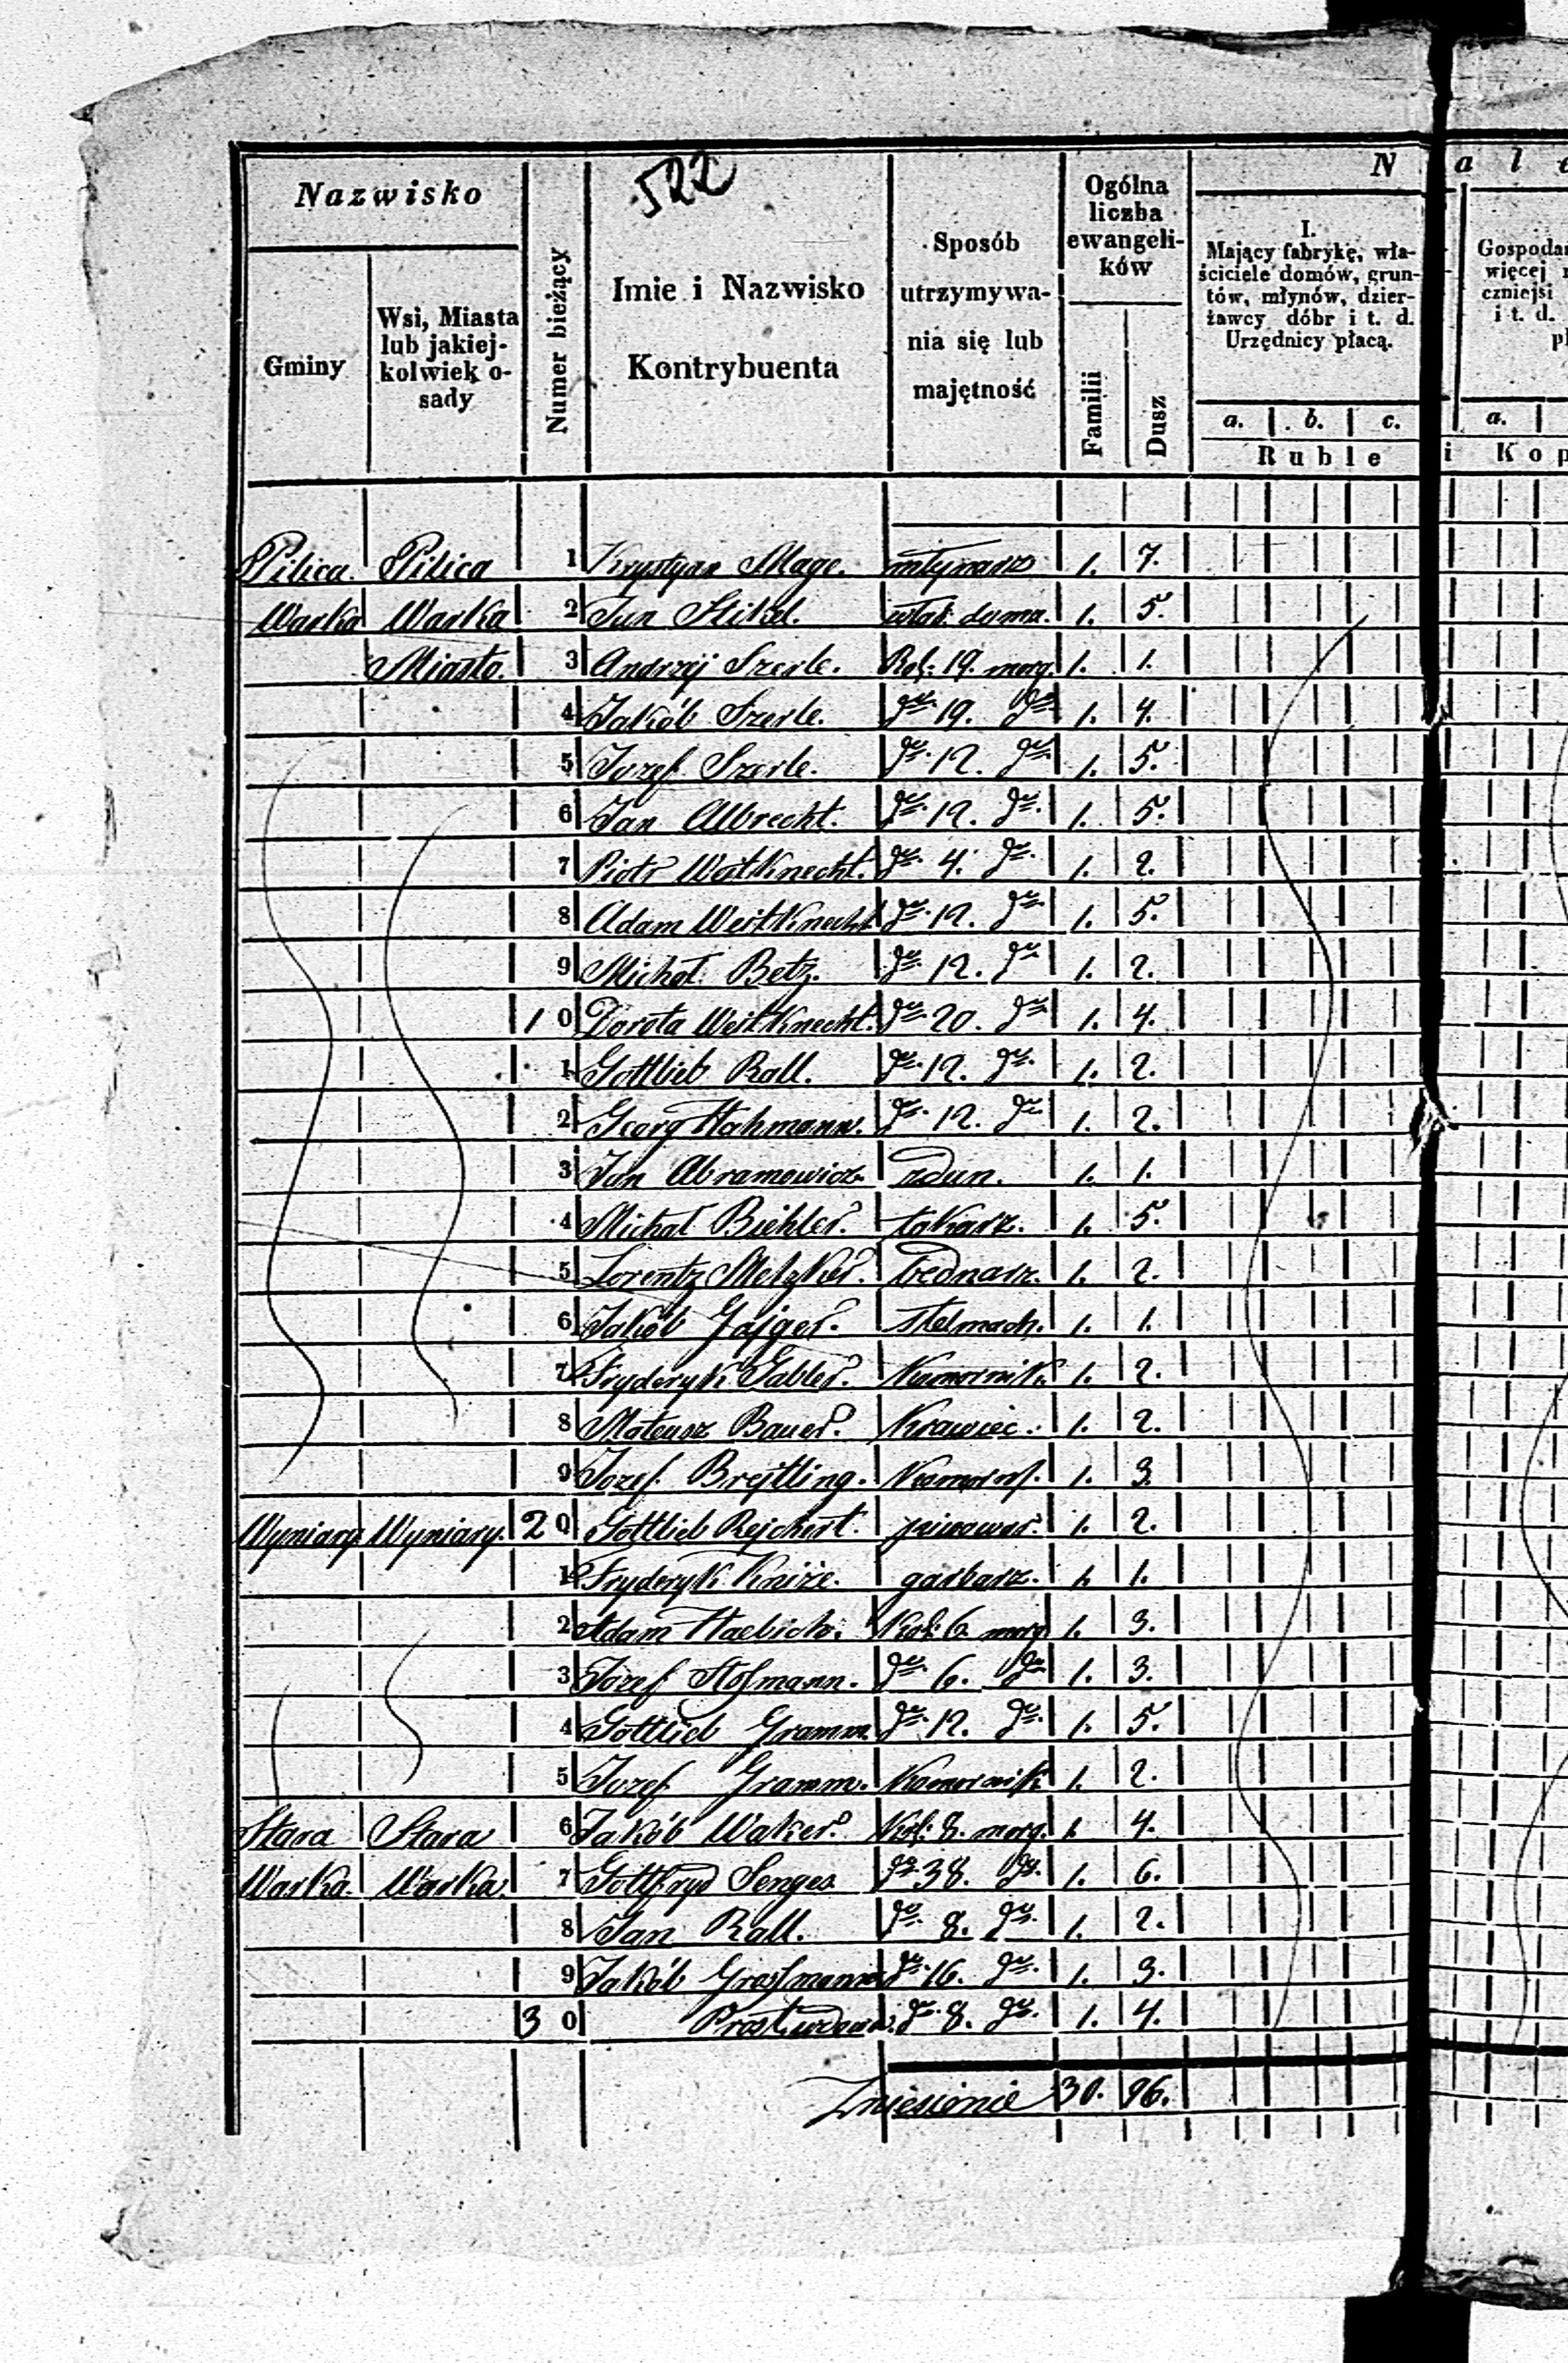 522
Nazwisko
Gminy
Wsi, Miasta lub jakiej-kolwiek o-sady
Numer bieżący
Imie i Nazwisko Kontrybuenta
Sposób utrzymywa-nia się lub majętność
Ogólna liczba ewangeli-ków
Familii
Dusz
N a l e
I.
Mający fabrykę, wła-
ściciele domów, grun-
tów, młynów, dzier-
żawcy dóbr i t. d.
Urzędnicy płacą.
a. b. c.
Ruble i Kop
Gospodar
więcej
czniejsi
i t. d.
a.
Pilica. Pilica 1 Krystyan Mage. młynarz 1. 7.
Warka Warka 2 Jan Stikel. właś. domu. 1. 5.
Miasto. 3 Andrzej Szerle. Rol: 19. morg. 1. 1.
4 Jakób Szerle. do 19. do 1. 4.
5 Jozef Szerle. do 12. do 1. 5.
6 Jan Albrecht. do 12. do 1. 5.
7 Piotr WeitKnecht. do 4. do 1. 2.
8 Adam WeitKnecht do 12. do 1. 5.
9 Michał Betz. do 12. do 1. 2.
10 Dorota WeitKnecht. do 20. do 1. 4.
1 Gottlieb Rall. do 12. do 1. 2.
2 Georg Hahmann. do 12. do 1. 2.
3 Jan Abramowicz zdun. 1. 1.
4 Michał Biehler. tokarz. 1. 5.
5 Lorentz Metzker. bednarz. 1. 2.
6 Jakób Gajger. stelmach. 1. 1.
7 Fryderyk Gabler. Komornik. 1. 2.
8 Mateusz Bauer. Krawiec. 1. 2.
9 Jozef Brejtling. Komorni. 1. 3.
Wyniary Wyniary. 20 Gottlieb Rejchert. piwowar. 1. 2.
1 Fryderyk garbarz. 1. 1.
2 Adam Haebich. Kol: 6. morg 1. 3.
3 Jozef Hofmann. do 6. do 1. 3.
4 Gottlieb Gramm. do 12. do 1. 5.
5 Jozef Gramm. Komornik 1. 2.
Stara Stara 6 Jakób Waker. Kol: 8. morg. 1. 4.
Warka. Warka. 7 Gottfryd Senges do 38. do 1. 6.
8 Jan Rall. do 8. do 1. 2.
9 Jakób Grossmann do 16. do 1. 3.
30 Prost wdowa. do 8. do 1. 4.
Zniesienie 30. 96.